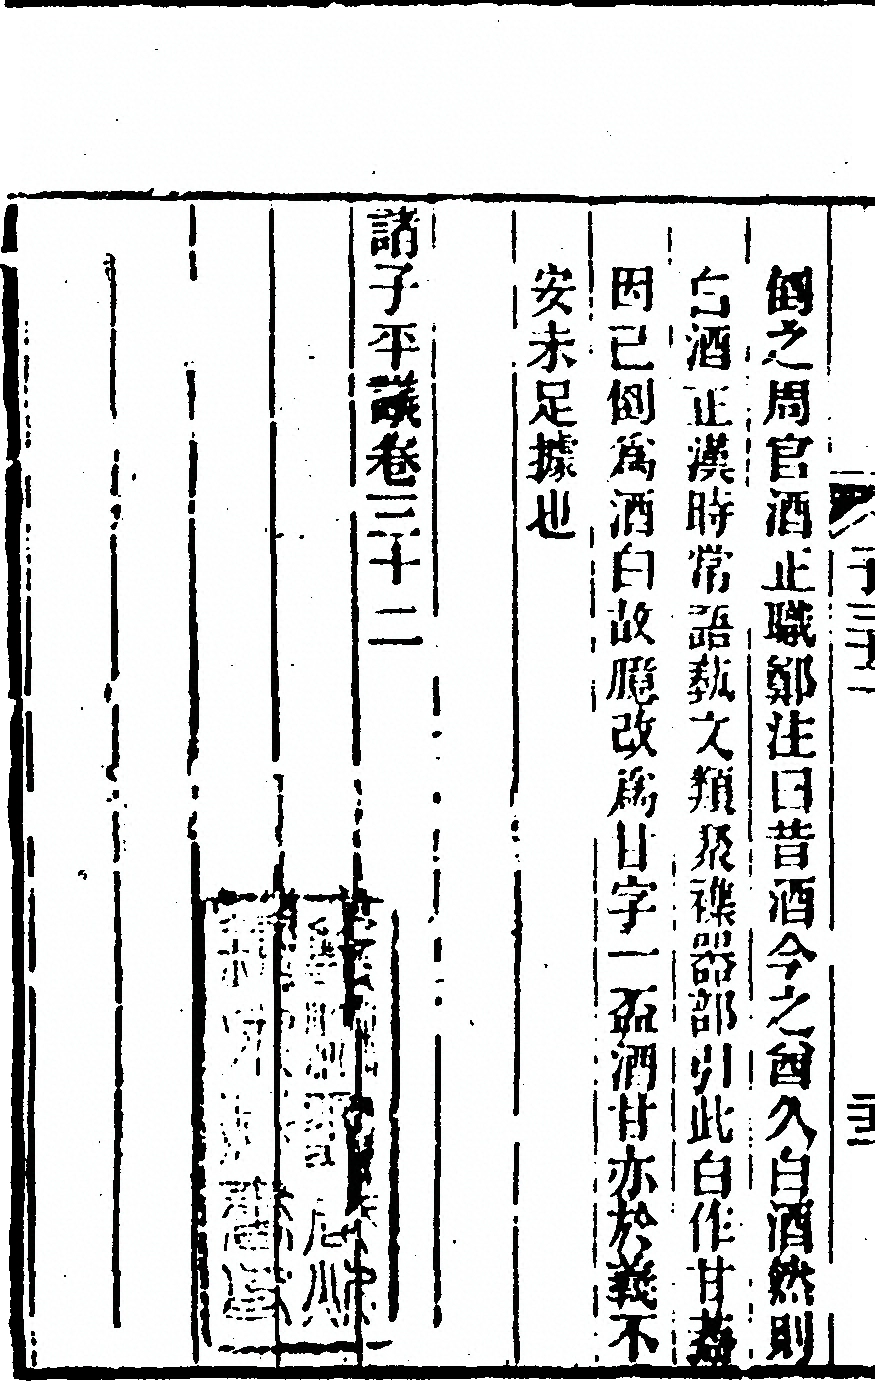 倒之周官酒正職鄭注曰昔酒今之酋久白酒然則
白酒正漢時常語藝文類聚襍器部引此白作甘蓋
因已倒爲酒白故臆改爲甘字一盃酒甘亦於義不
安未足據也
諸子平議卷三十二